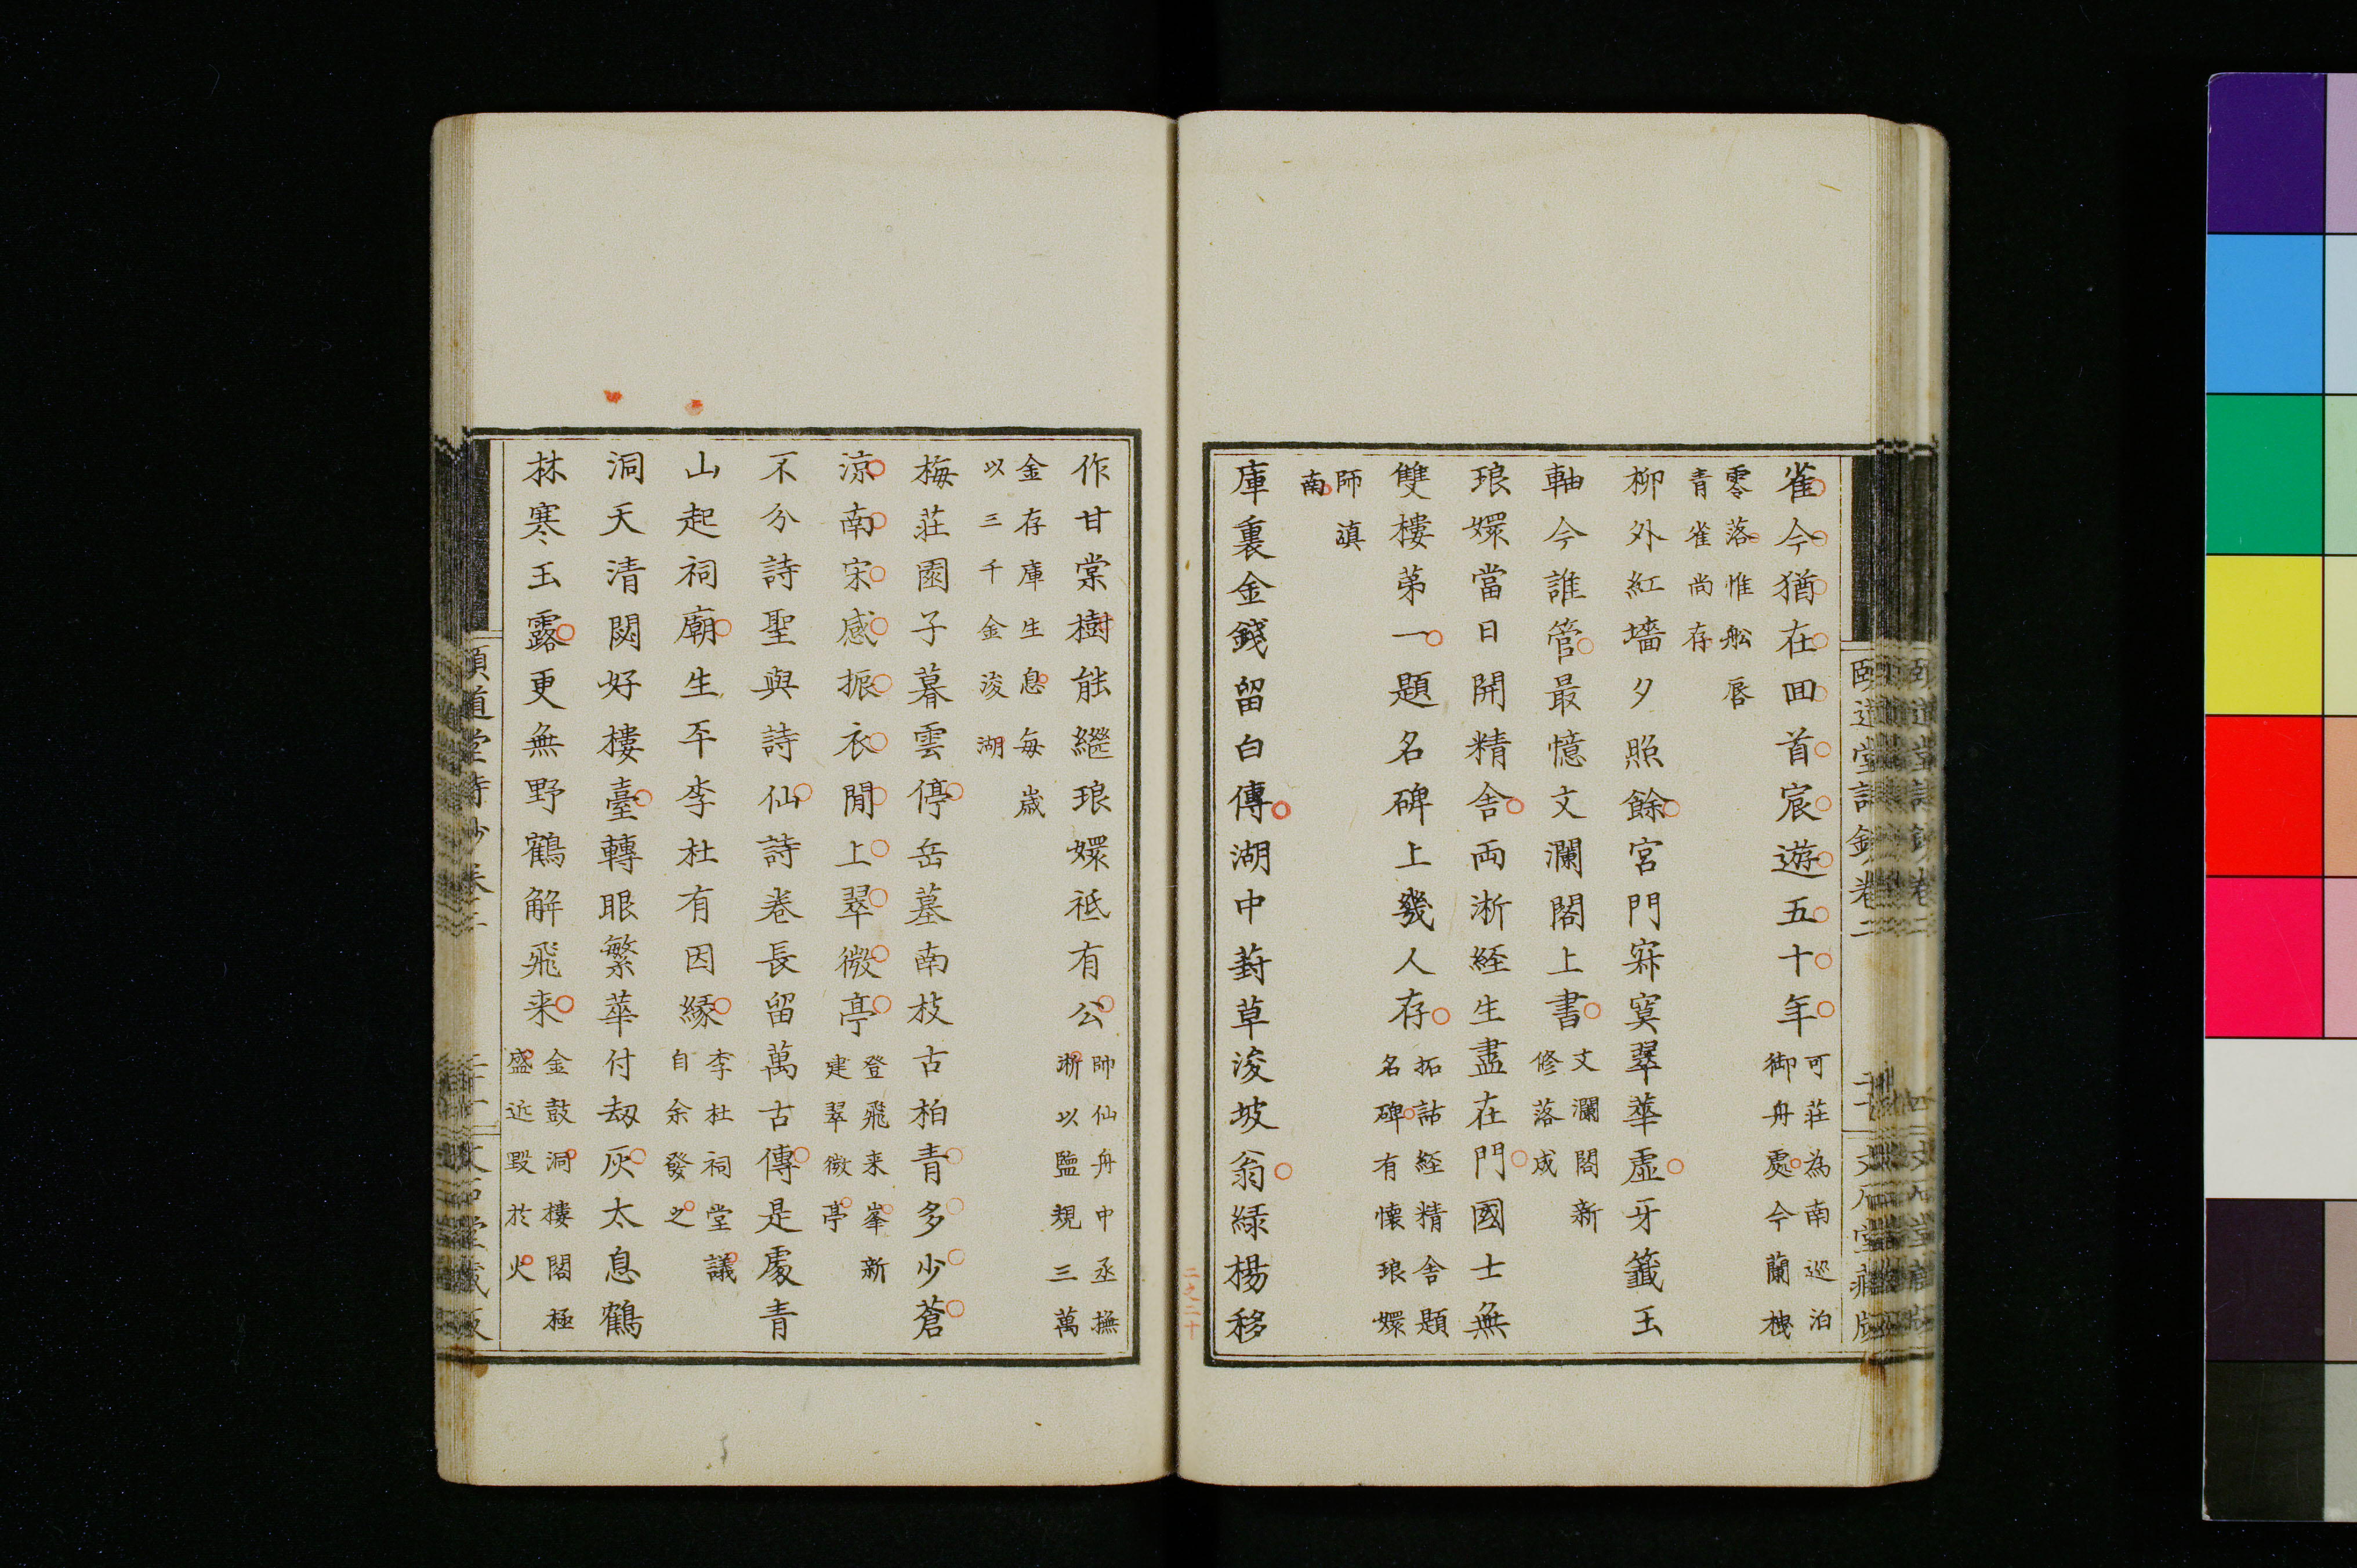 雀今猶在回首宸遊五十年可莊為南巡泊
御舟處今蘭槐
零落惟舩唇
青雀尚存
柳外紅墻夕照餘宮門寂寞翠華虛牙籤玉
軸今誰管最憶文瀾閣上書文瀾閣新
修落成
琅嬛當日開精舍両淅経生盡在門國士無
雙樓第一題名碑上幾人存拓詁経精舍題
名碑有懐琅嬛
師滇
南
庫裏金錢留白傳湖中葑草浚坡翁緑楊移
作甘棠樹能繼琅嬛祗有公帥仙舟中丞撫
淅以監規三萬
金存庫生息毎歳
以三千金浚湖
梅莊園子暮雲停岳墓南枝古柏青多少蒼
涼南宋感振衣閒上翠微亭登飛来峯新
建翠微亭
不分詩聖與詩仙詩卷長留萬古傳是處青
山起祠廟生平李杜有因縁李杜祠堂議
自余發之
洞天清閟好樓臺轉眼繁華付刧灰太息鶴
林寒玉露更無野鶴解飛来金鼓洞樓閣極
盛近毀於火
頤道堂詩鈔卷二
二之二十